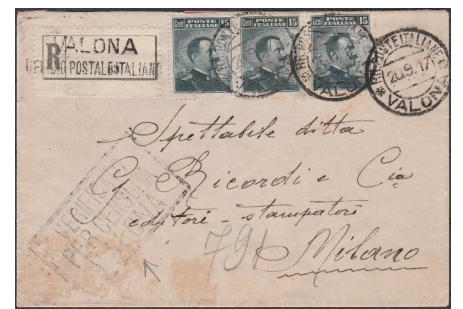 VALONA
R
POSTALE ITALIANE
POSTE ITALIANE 15
POSTE ITALIANE 15
POSTE ITALIANE 15
VALONA
POSTE ITALIANE
20.9.17
* VALONA
Spettabile ditta
G Ricordi e Cia
editori - stampatori
Milano
791
VERIFICATO
PER CENSURA